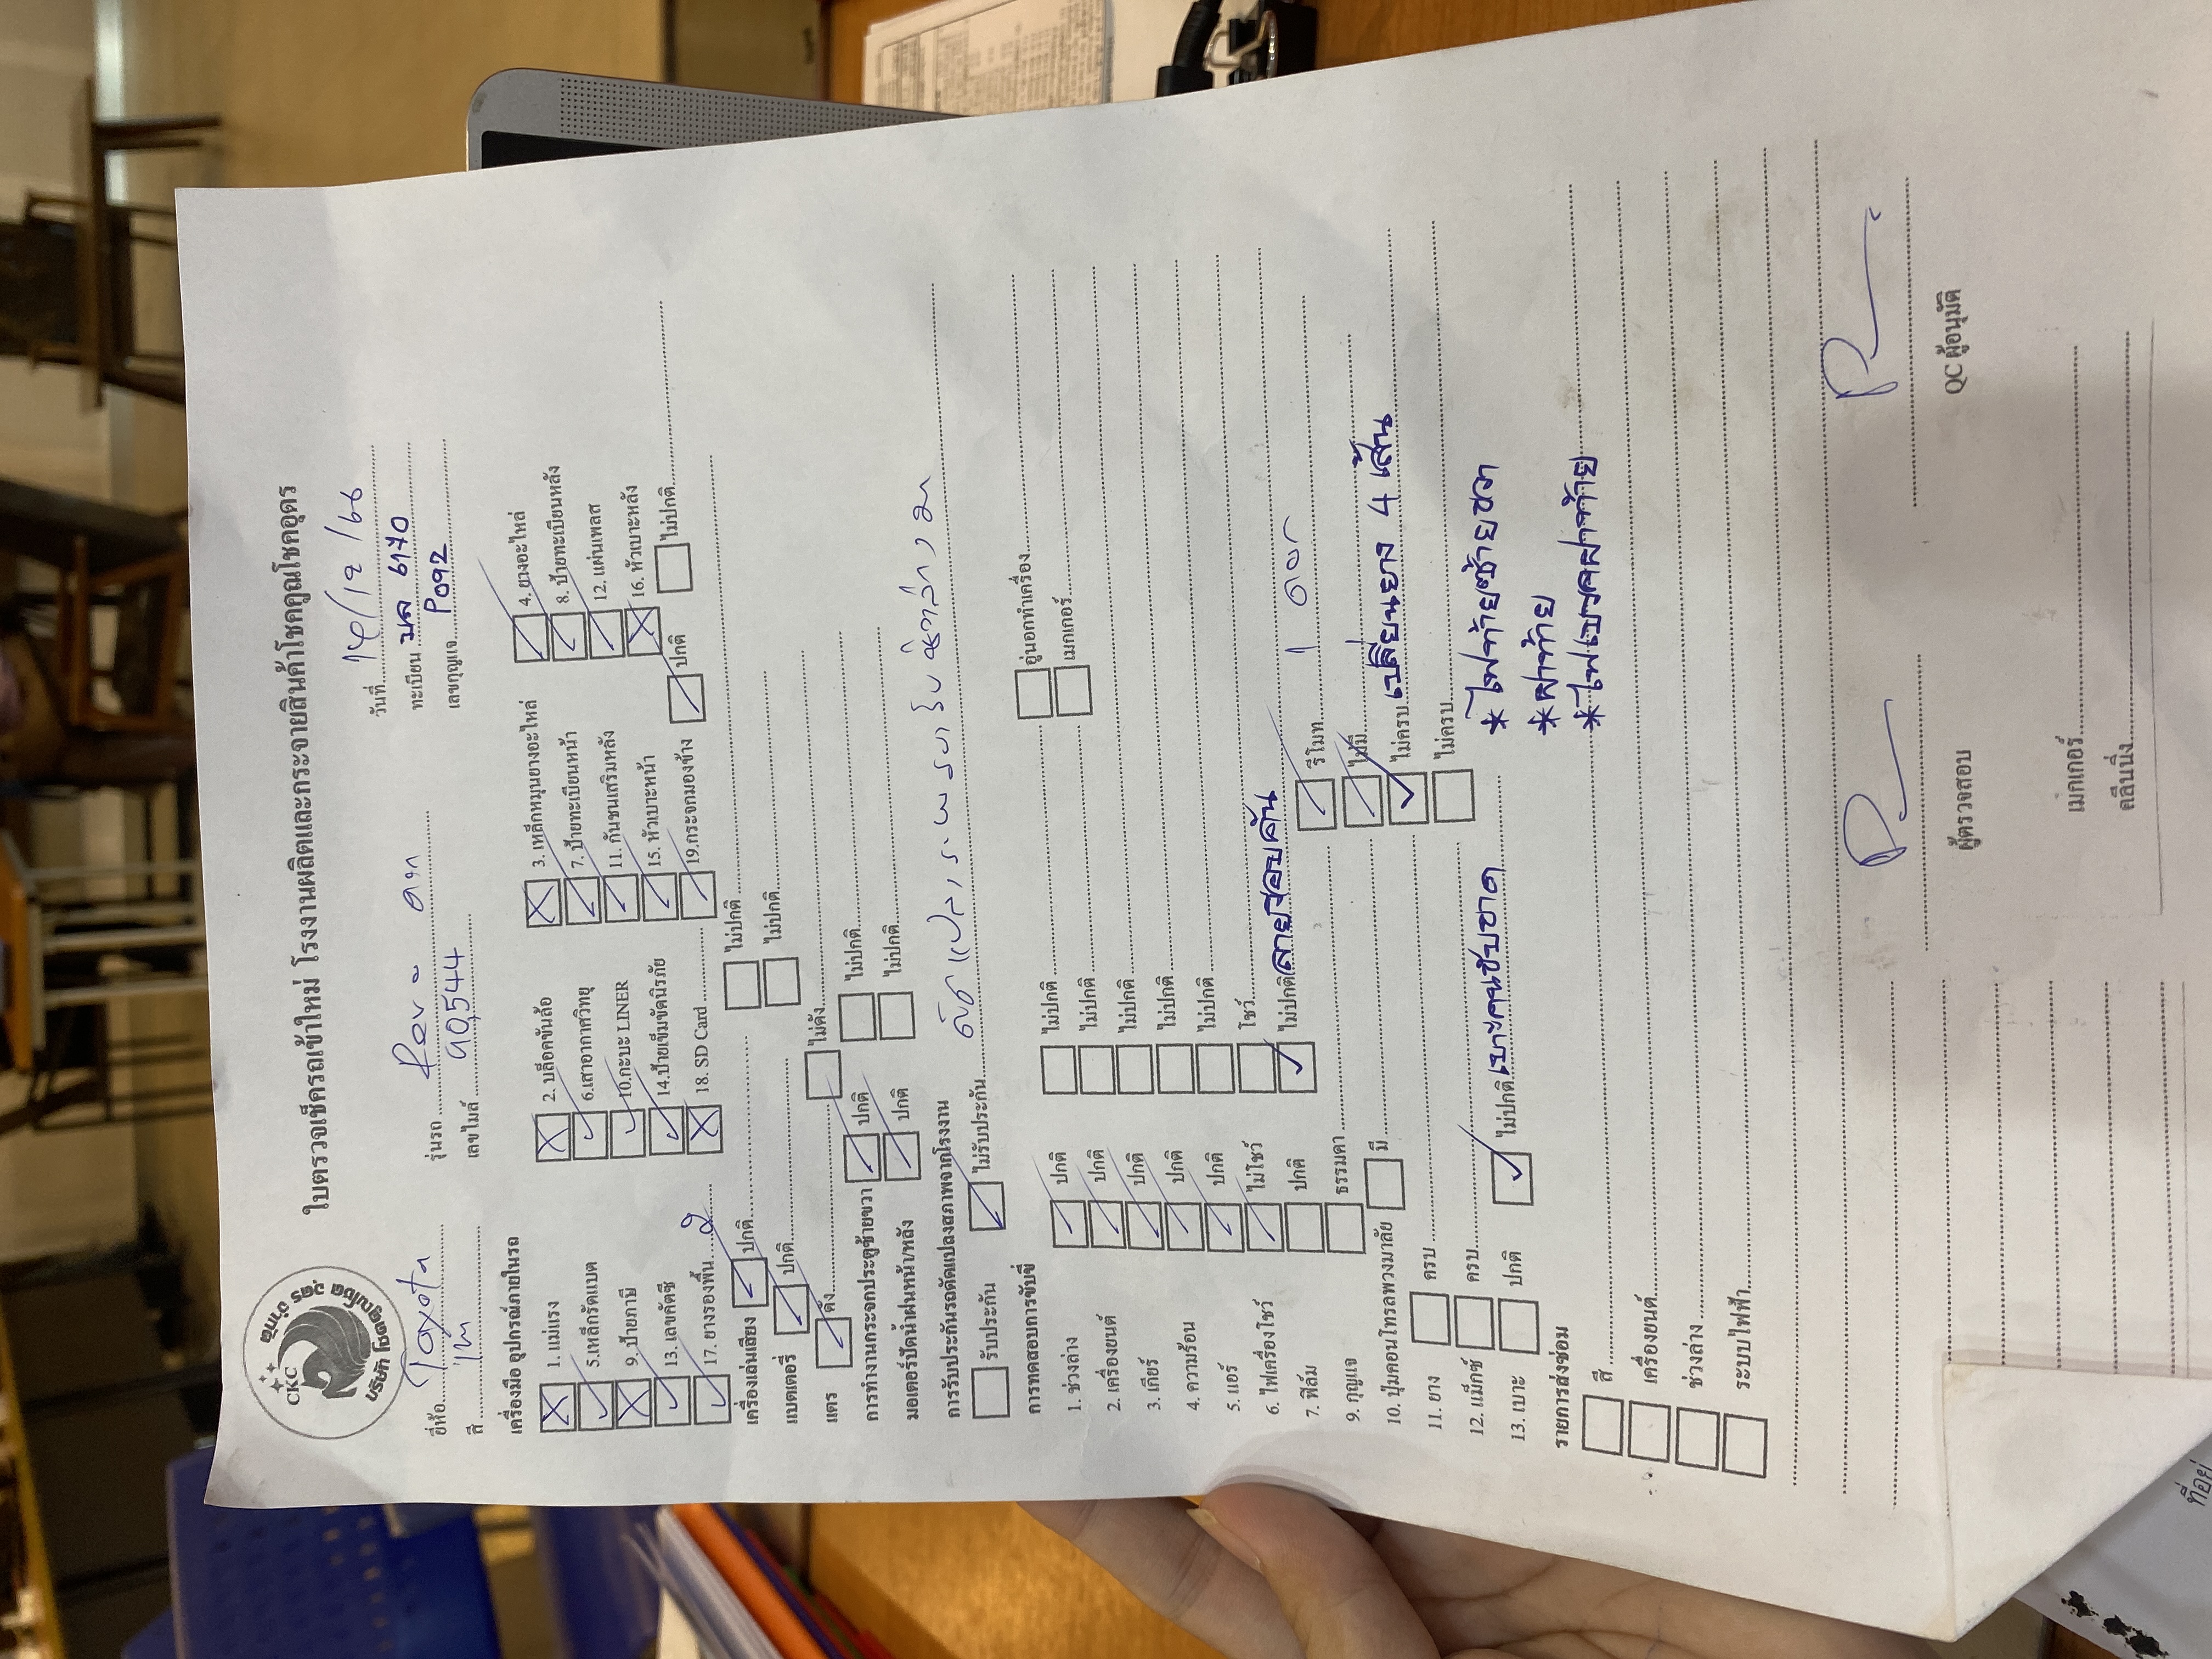 CKC
บริษัท โชคคูณโชค อุดร จำกัด
ใบตรวจเช็ครถเข้าใหม่ โรงงานผลิตและกระจายสินค้าโชคคูณโชคอุดร
วันที่ /12/66
ยี่ห้อ Toyota รุ่นรถ Revo ทะเบียน 6170
สี เลขไมล์ 90,544 เลขกุญแจ P092
เครื่องมือ อุปกรณ์ภายในรถ
1. แม่แรง 2. บล็อคขันล้อ 3. เหล็กหมุนยางอะไหล่ 4. ยางอะไหล่
5.เหล็กรัดแบต 6.เสาอากาศวิทยุ 7. ป้ายทะเบียนหน้า 8. ป้ายทะเบียนหลัง
9. ป้ายภาษี 10.กะบะ LINER 11. กันชนเสริมหลัง 12. แผ่นเพลส
13. เลขคัตซี 14.ป้ายเข็มขัดนิรภัย 15. หัวเบาะหน้า 16. หัวเบาะหลัง
17. ยางรองพื้น 18. SD Card 19.กระจกมองข้าง ปกติ ไม่ปกติ
เครื่องเล่นเสียง ปกติ ไม่ปกติ
แบตเตอรี่ ปกติ ไม่ปกติ
แตร ดัง ไม่ดัง
การทำงานกระจกประตูซ้ายขวา ปกติ ไม่ปกติ
มอเตอร์ปัดน้ำฝนหน้า/หลัง ปกติ ไม่ปกติ
การรับประกันรถดัดแปลงสภาพจากโรงงาน
รับประกัน ไม่รับประกัน
การทดสอบการขับขี่ อู่นอกทำเครื่อง
1. ช่วงล่าง ปกติ ไม่ปกติ เมกเกอร์
2. เครื่องยนต์ ปกติ ไม่ปกติ
3. เกียร์ ปกติ ไม่ปกติ
4. ความร้อน ปกติ ไม่ปกติ
5. แอร์ ปกติ ไม่ปกติ
6. ไฟเครื่องโชว์ ไม่โชว์ โชว์
7. ฟิล์ม ปกติ ไม่ปกติ ลายรอบคัน
9. กุญแจ ธรรมดา รีโมท 1 ดอก
10. ปุ่มคอนโทรลพวงมาลัย มี ไม่มี
11. ยาง ครบ ไม่ครบ เปลี่ยนยาง 4 เส้น
12. แม็กซ์ ครบ ไม่ครบ
13. เบาะ ปกติ ไม่ปกติ เบาะคนขับขาด *ไฟท้ายซ้ายขวา
รายการส่งซ่อม *ฝาท้าย
สี *ไฟเบรคฝาท้าย
เครื่องยนต์
ช่วงล่าง
ระบบไฟฟ้า
ผู้ตรวจสอบ QC ผู้อนุมัติ
เมกเกอร์
คลีนนิ่ง